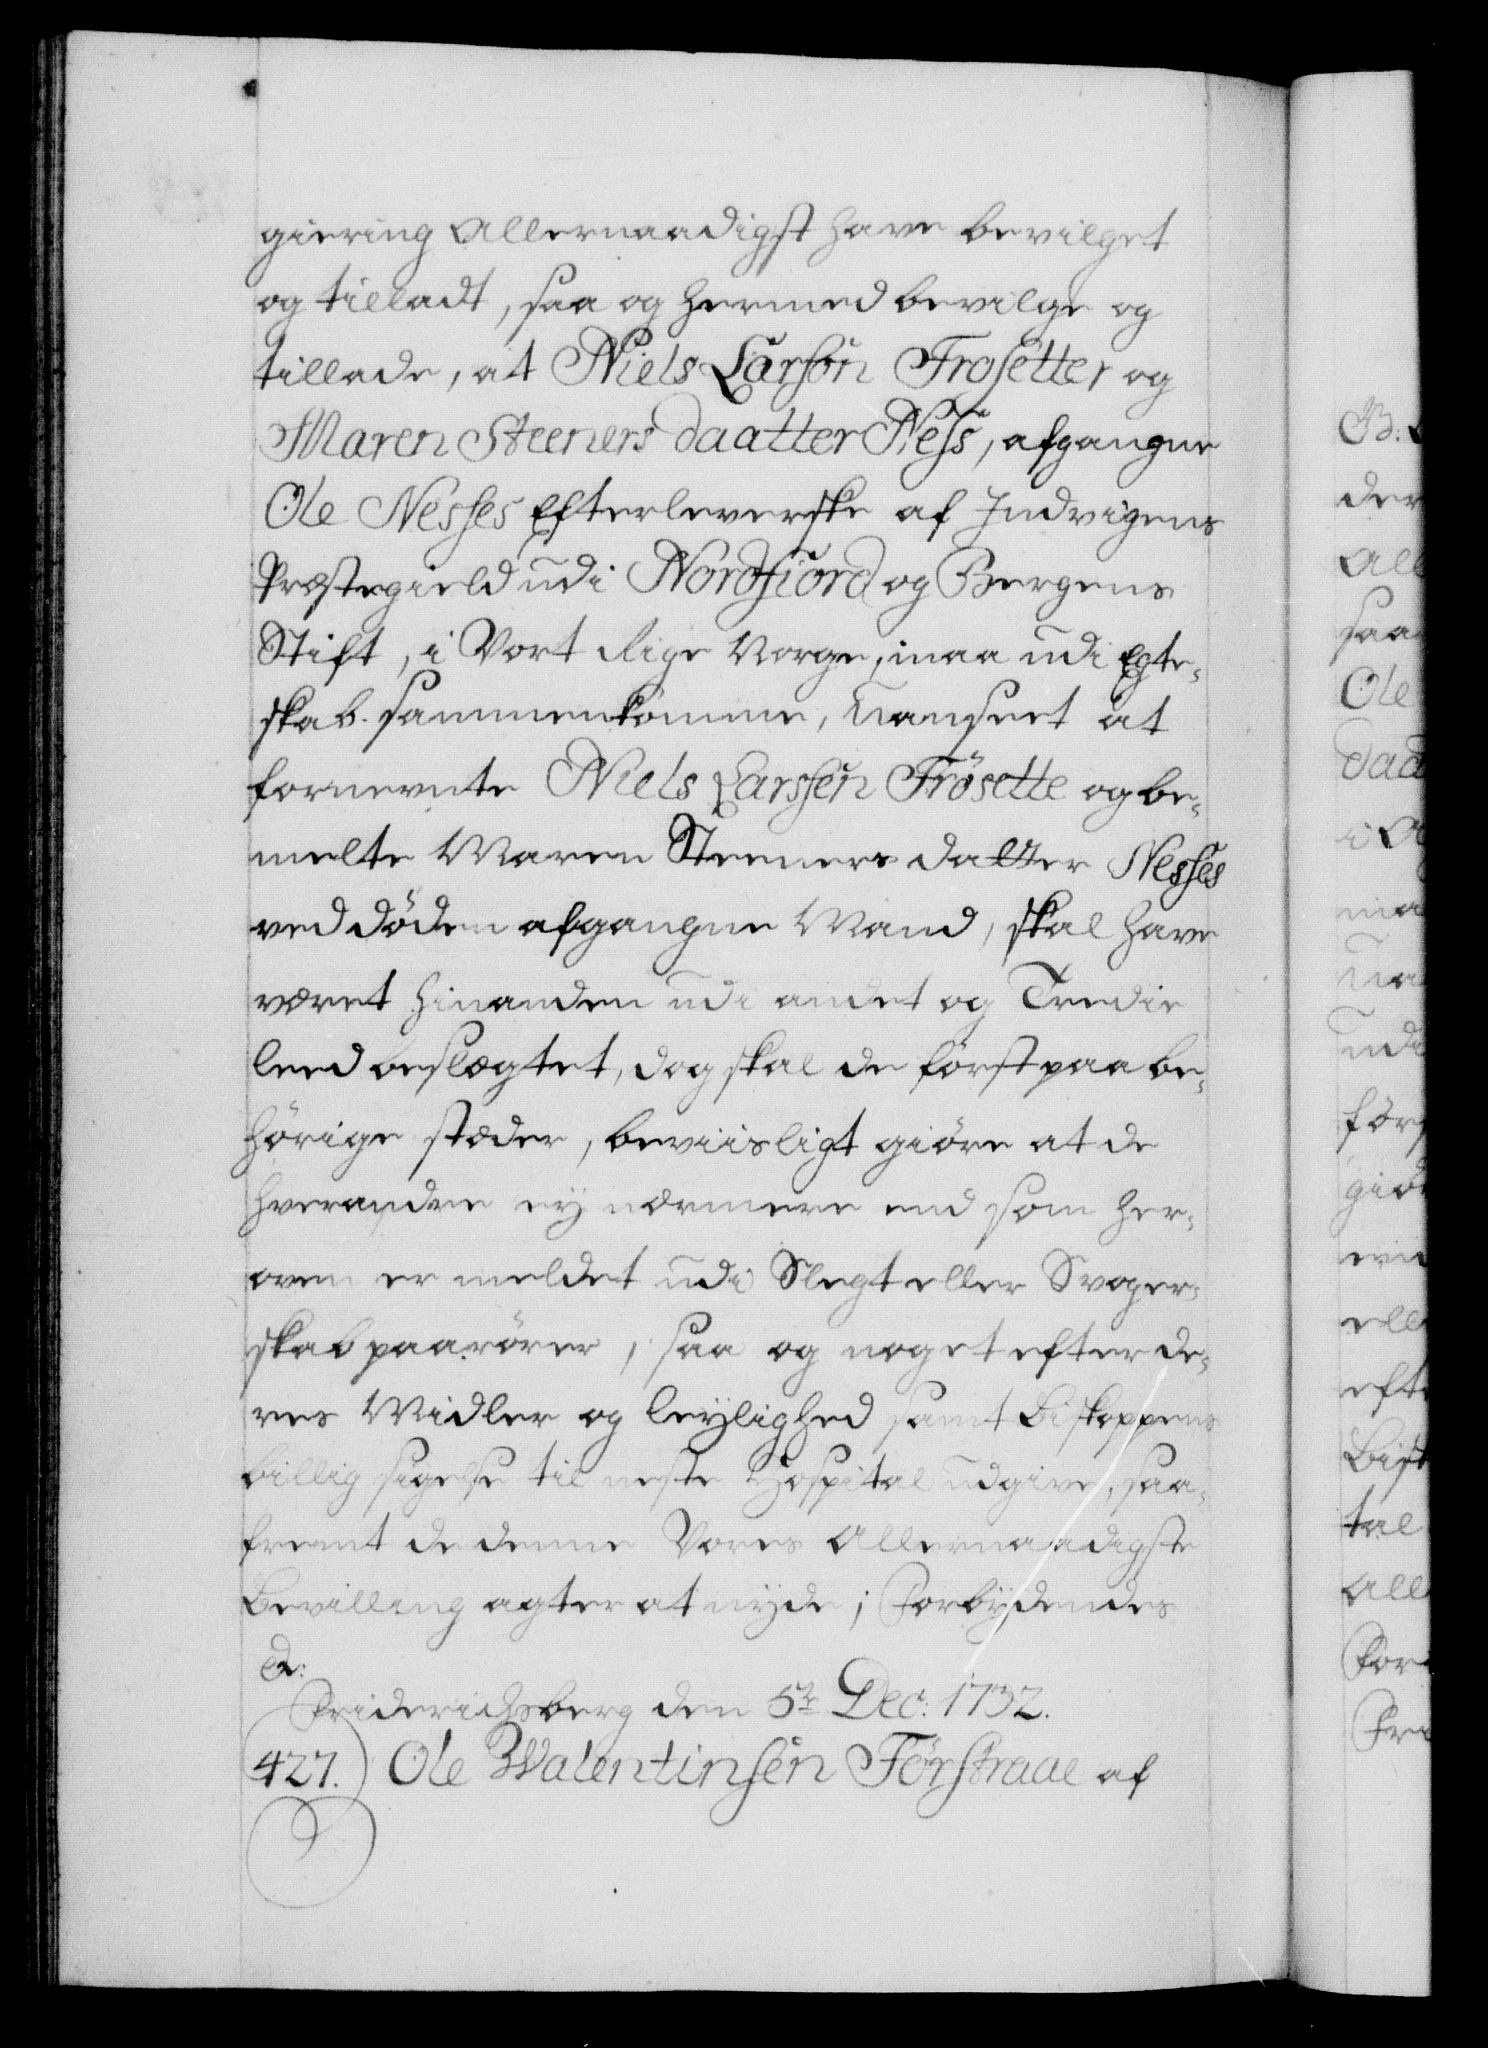 giering Allernaadigst have bevilget
og tilladt, saa og hermed bevilge og
tillade, at Niels Larsøn Frosetter og
Maren Steeners daatter Ness, afgangne
Ole Nesses Efterleverske af Indvigens
Præstegield udi Nordfiord og Bergens
Stift, i Vort Rige Norge, maa udi Egte¬
skab sammenkomme, uanseet at
fornevnte Niels Larssen Frøsette og be¬
melte Maren Steeners datter Nesses
ved døden afgangne Mand, skal have
været hinanden udi andet og Tredie
leed beslægtet, dog skal de først paa be¬
hørige stæder, beviisligt giøre at de
hverandre ey nærmere end som her¬
oven er meldet udi Slegt eller Svoger¬
skab paarører, saa og noget efter de¬
res Midler og leylighed samt Biskoppens
billig sigelse til neste Hospital udgive, saa¬
fremt de denne Vores Allernaadigste
Bevilling agter at nyde; Forbydendes
&:
Friderichsberg den 5te Dec: 1732.
427.) Ole Walentinsen Førstraae af
B.
der
All
saa
Ole
daa
ma
ua
udi
førs
giør
end
elle
efte
Bisk
tal
Alle
For
Fri